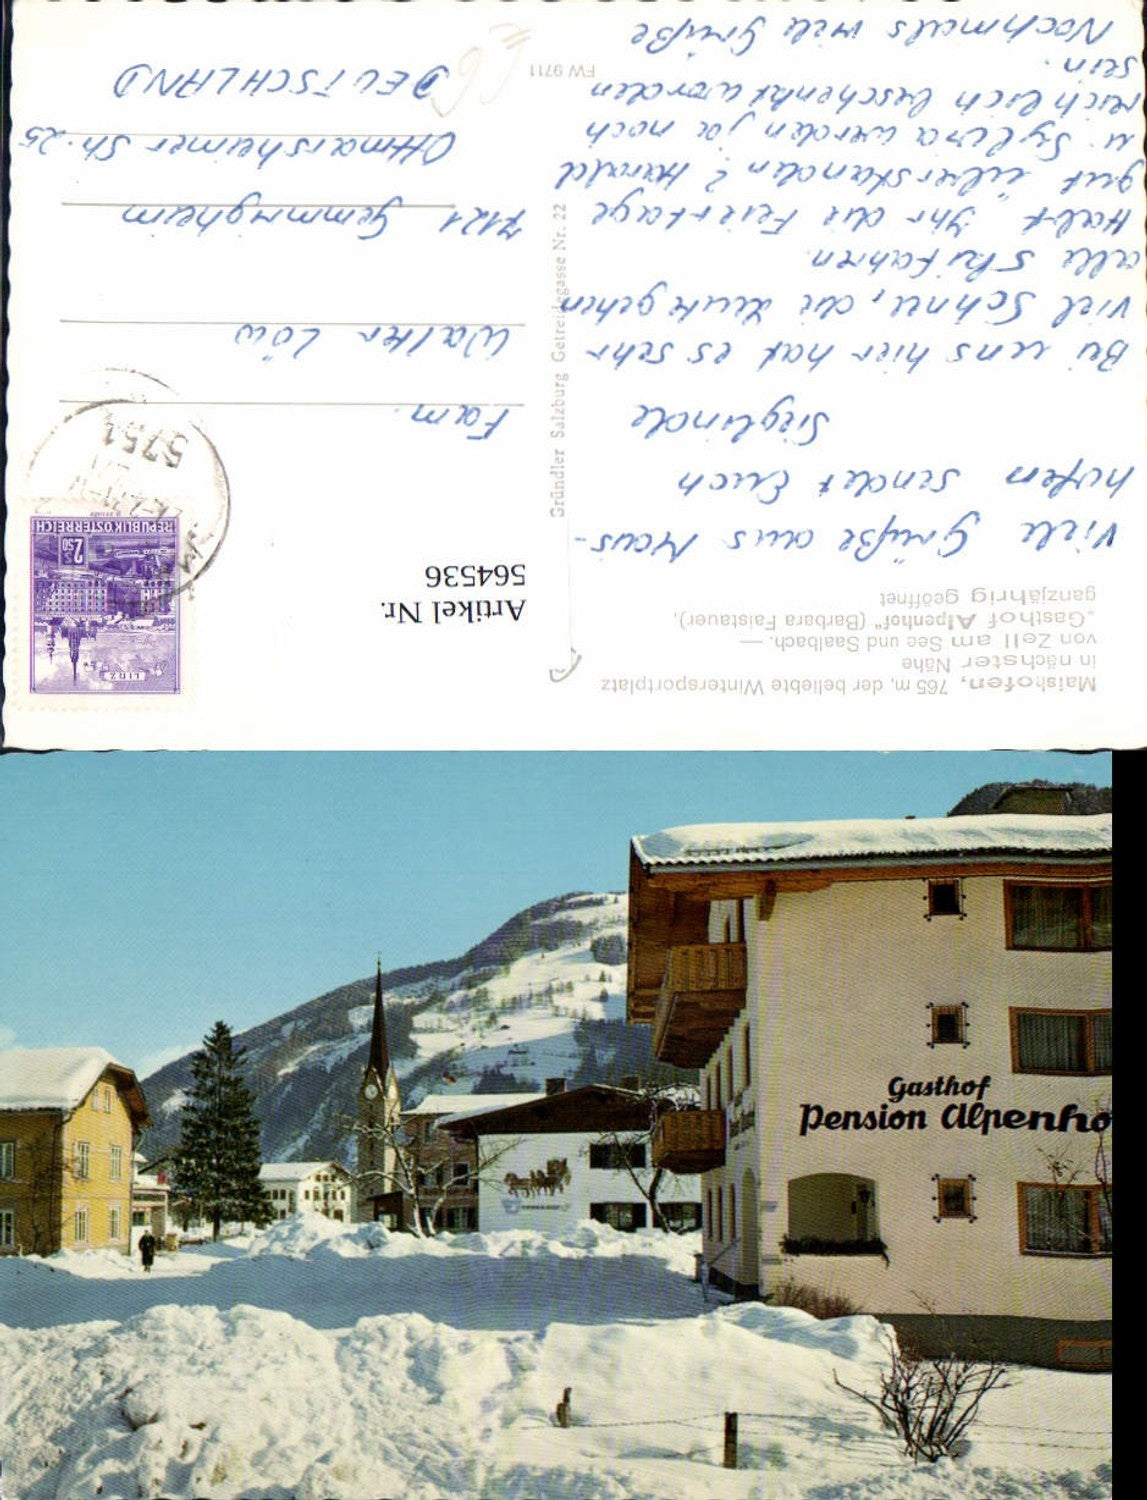 Maishofen, 765 m, der beliebte Wintersportplatz
in nächster Nähe
von Zell am See und Saalbach. —
„Gasthof Alpenhof" (Barbara Faistauer),
ganzjährig geöffnet
Viele Grüße aus Mais-
hofen sendet Euch
Sieglinde
Bei uns hier hat es sehr
viel Schnee, die Leute gehen
alle Skifahren.
Habt Ihr die Feiertage
gut überstanden? Harald
u. Sylvia werden ja noch
reichlich beschenkt worden
sein.
Nochmals viele Grüße
Gründler Salzburg Getreidegasse Nr. 22
FW 9711
Artikel Nr.
564536
LINZ
S 2.50
REPUBLIK ÖSTERREICH
5751
Fam.
Walter Löw
7121 Gemmrigheim
Ottmarsheimer Str. 25
DEUTSCHLAND
Gasthof
Pension Alpenho